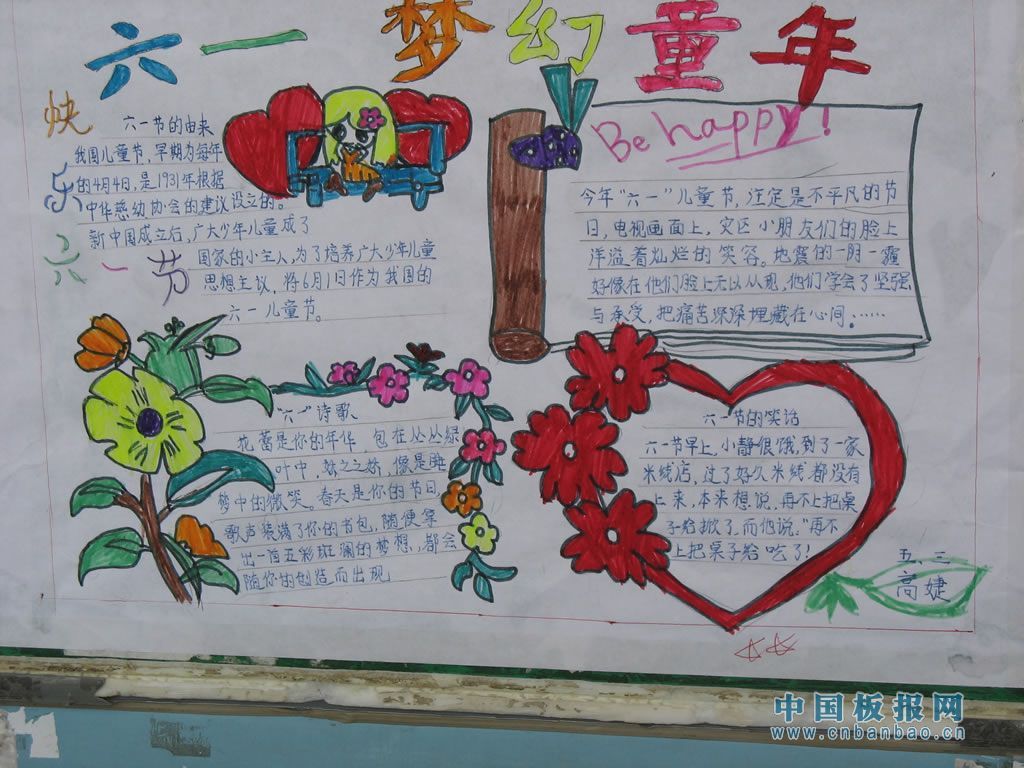 六一梦幻童年
快乐六一节
六一节的由来
我国儿童节，早期为每年
的4月4日，是1931年根据
中华慈幼协会的建议设立的。
新中国成立后，广大少年儿童成了
国家的小主人，为了培养广大少年儿童
思想主议，将6月1日作为我国的
六一儿童节。
Be happy!
今年“六一”儿童节，注定是不平凡的节
日，电视画面上，灾区小朋友们的脸上
洋溢着灿烂的笑容。地震的一阴霾
好像在他们脸上无以从现，他们学会了坚强
与承受，把痛苦深深埋藏在心间。……
“六一”诗歌
花蕾是你的年华 包在丛丛绿
叶中，娇之之娇，像是睡
梦中的微笑。春天是你的节日
歌声装满了你的书包，随便拿
出一首五彩斑斓的梦想，都会
随你的创造而出现
六一节的笑话
六一节早上，小静很饿，到了一家
米线店，过了好久米线都没有
上来，本来想说，再不上把桌
子给掀了，而他说：“再不
上把桌子给吃了！
五、三
高婕
中国板报网
www.cnbanbao.cn